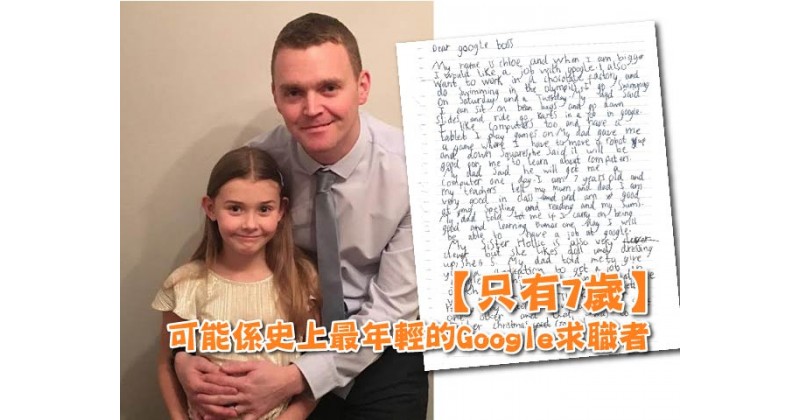 Dear google boss
My name is Chloe and when I am bigger
I would like a job with google. I also
want to work in a chocolate factory and
do swimming in the olympics. I go swimming
on Saturday and a Tuesday. My dad said
I can sit on bean bags and go down
slides and ride go karts in a job in google.
I like computers too and have a
tablet I play games on. My dad gave me
a game where I have to move a robot up
and down squares, he said it will be
good for me to learn about computers.
My dad said he will get me a
computer one day. I am 7 years old and
my teachers tell my mum and dad I am
very good in class and am good
at my spelling and reading and my sums.
My dad told me if I carry on being
good and learning then one day I will
be able to have a job at google.
My sister Hollie is also very clever
but she likes dolls and dressing
up, she is 5. My dad told me to give
you to get a job in
【只有7歲】
可能係史上最年輕的Google求職者